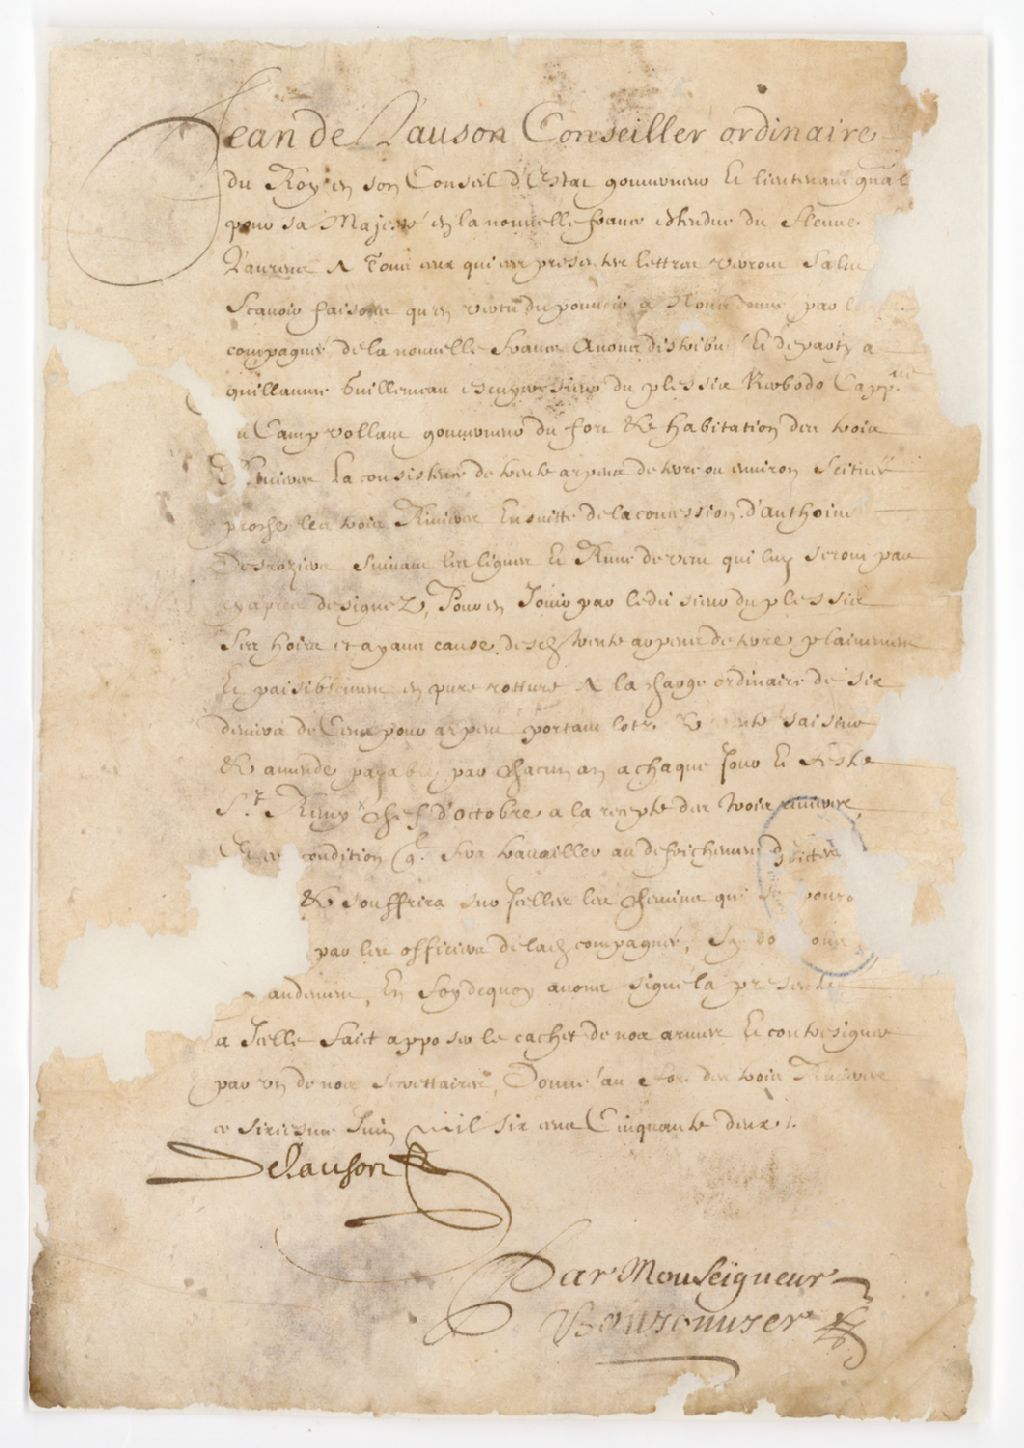 Jean de Lauson Conseiller ordinaire
du Roy en son Conseil d'Estat gouverneur et lieutenant gnāl
pour sa Majesté en la nouvelle france estendue du fleuve
Laurens A Tous ceux qui ces presentes lettres verront Salut
Scavoir faisons qu'en vertu du pouvoir a Nous donné par la
compagnie de la nouvelle france Avons distribué et departy a
guillaume guillemeau escuyer sieur du plessis Kerbodo Capp.ne
du Camp vollant gouverneur du fort & habitation des trois
Rivieres la consistence de trente arpens de terre ou environ scitués
proche les trois Rivieres Ensuitte de la concession d'anthoine
Desrosiers suivant les lignes et Rung de vent qui luy seront par
cy apres designez, Pour en Jouir par ledit sieur du plessis
ses hoirs et ayans cause desd trente arpens de terre plainement
et paisiblement en pure rotture A la charge ordinaire de six
deniers de Cens pour arpent portant lots & vente saisine
& amende payable par chacun an a chaque Jour et feste
St. Remy chef d'octobre a la recepte des trois rivieres
condition q. fera travailler au defrichement d
& souffrira sur Icelles les chemins qui se pour
par les officiers de lad compagnie, Sy do
andement, En foy de quoy avons signé la presente
a Icelle fait apposer le cachet de nos armes et contresigner
par un de nos secrettaires, Donné au fort des trois Rivieres
ce sixiesme Juin Mil six cens Cinquante deux.
Delauson
Par Monseigneur